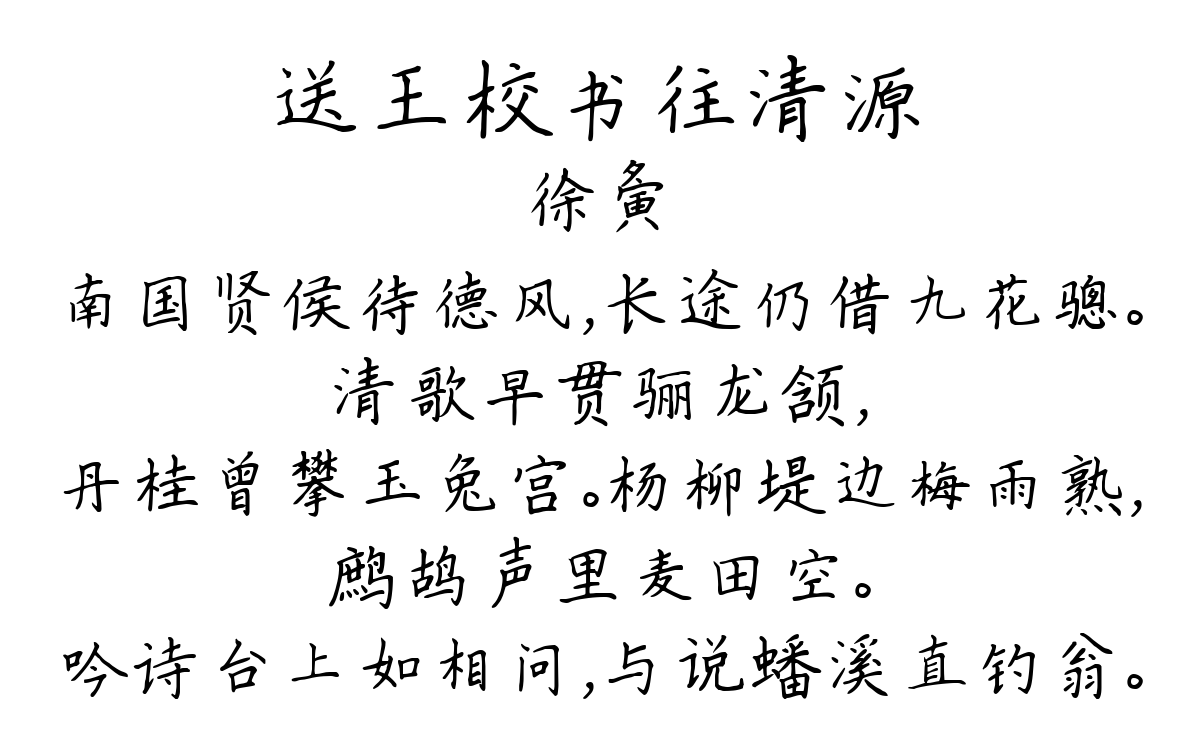 送王校书往清源
徐夤
南国贤侯待德风,长途仍借九花骢。
清歌早贯骊龙颔,
丹桂曾攀玉兔宫。杨柳堤边梅雨熟,
鹧鸪声里麦田空。
吟诗台上如相问,与说蟠溪直钓翁。